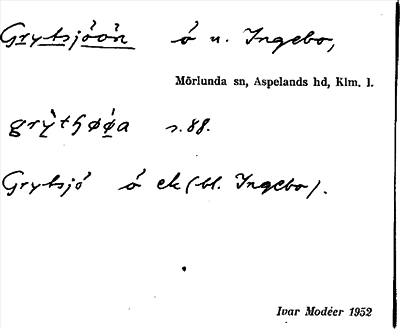 Grytsjöån å n. Ingebo,
Mörlunda sn, Aspelands hd, Klm. l.
s. 88.
Grytsjö å ek (bl. Ingebo).
Ivar Modéer 1952